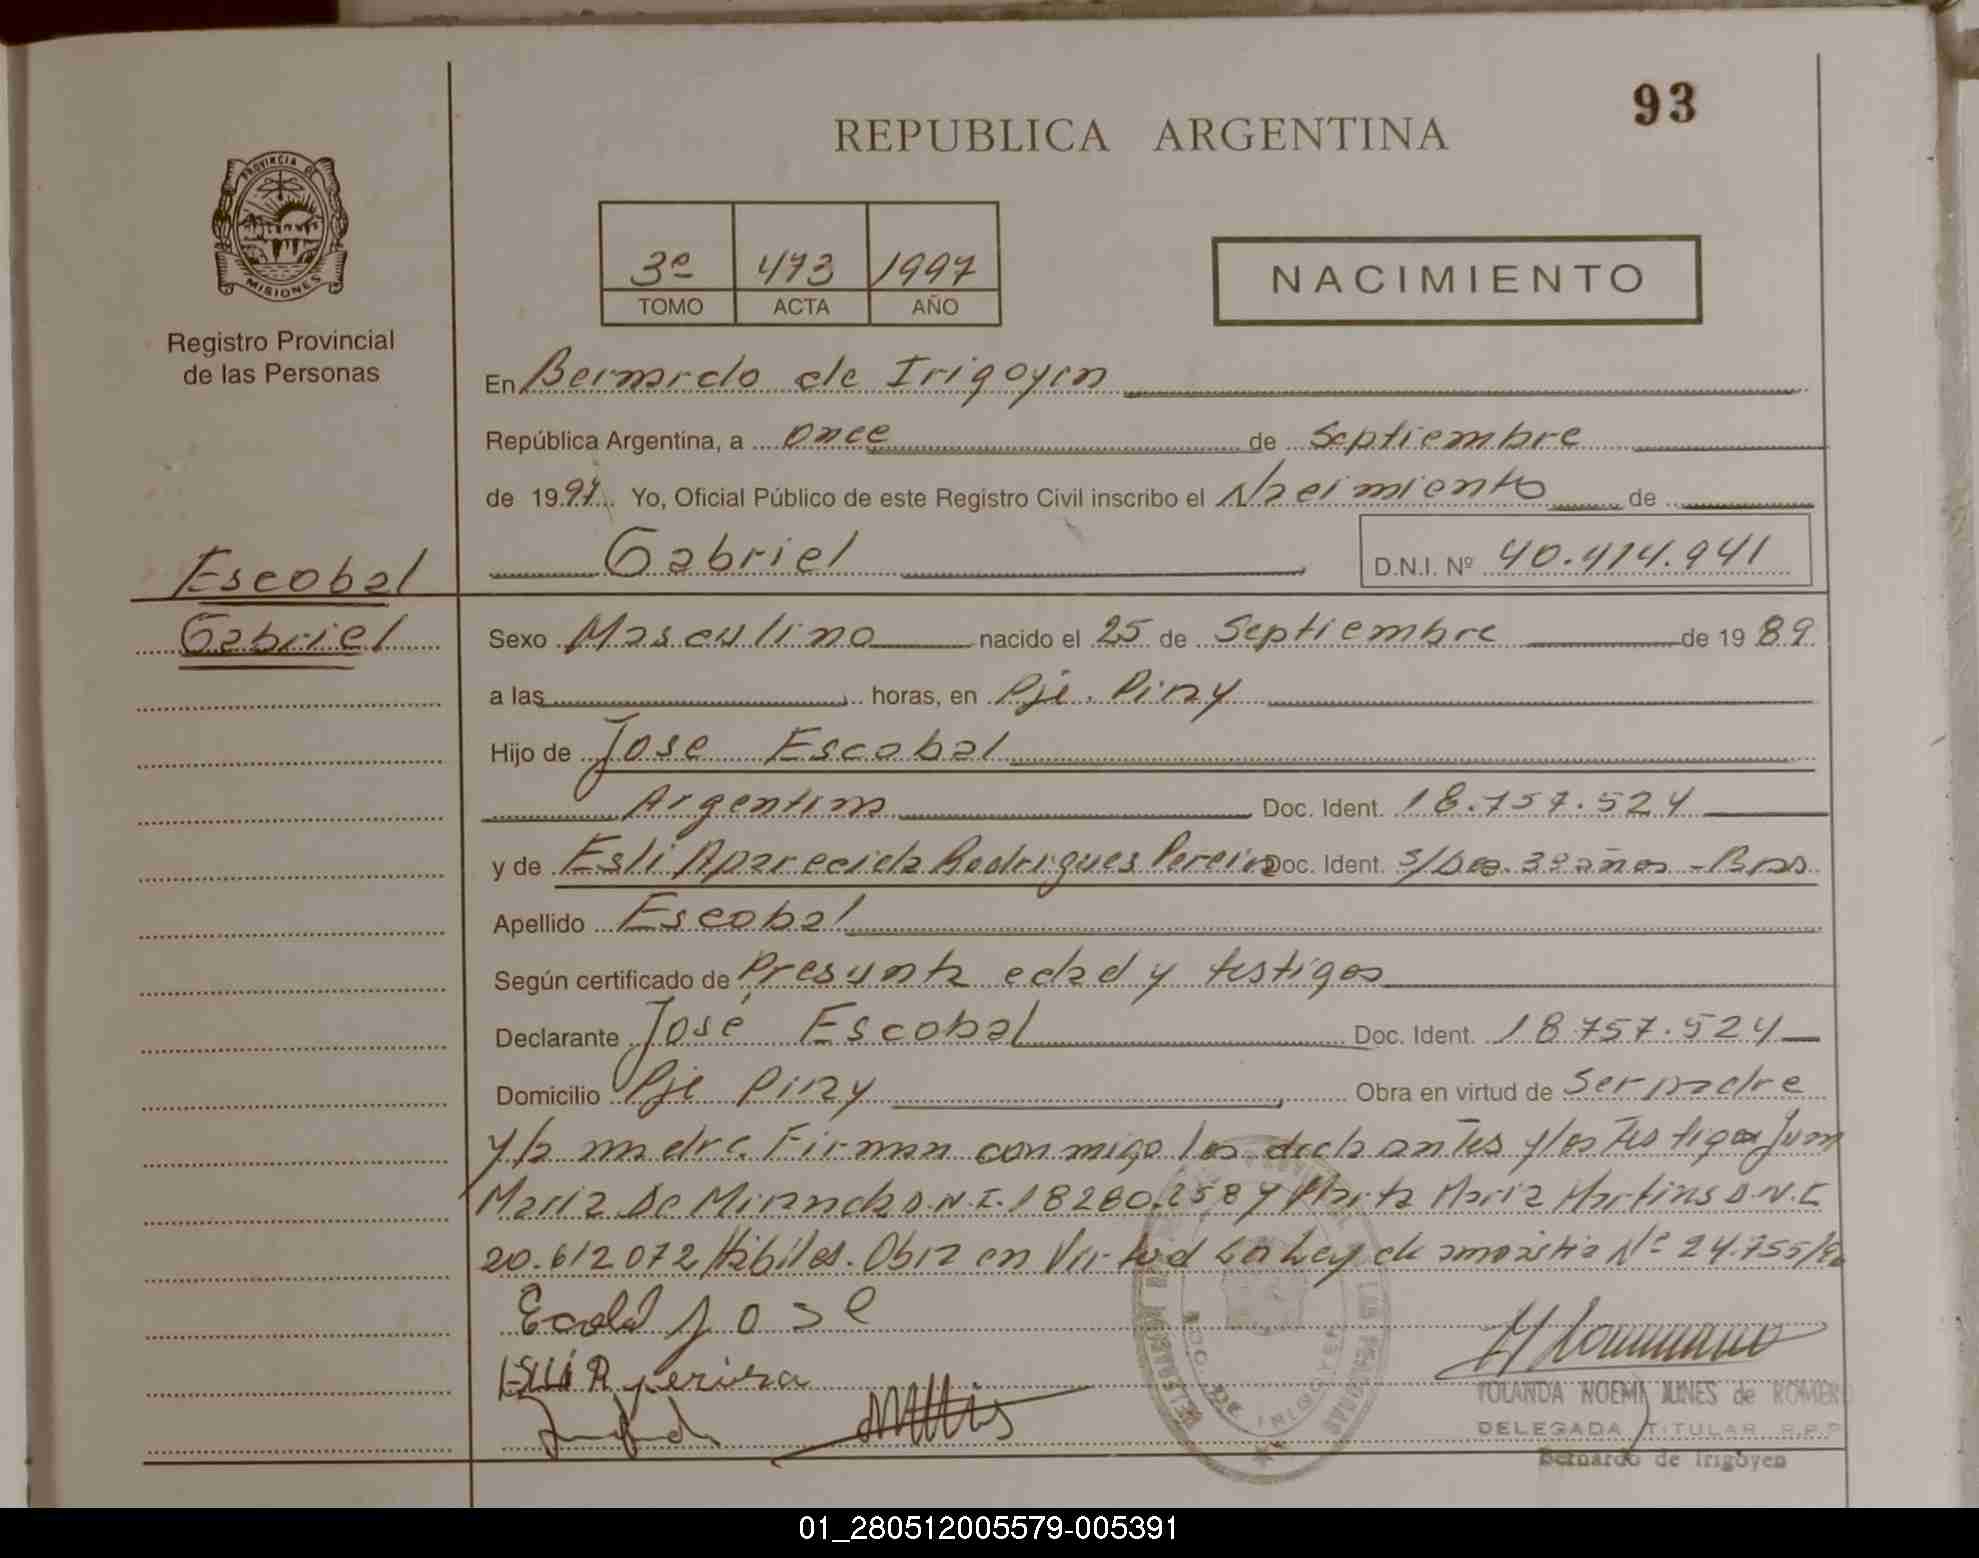 93
REPUBLICA ARGENTINA
PROVINCIA DE
MISIONES
Registro Provincial
de las Personas
3º 473 1997
TOMO ACTA AÑO
NACIMIENTO
En Bernardo de Irigoyen
República Argentina, a once de Septiembre
de 1997 Yo, Oficial Público de este Registro Civil inscribo el Nacimiento de
Gabriel D.N.I. Nº 40.414.941
Escobal
Gabriel
Sexo Masculino nacido el 25 de Septiembre de 1989
a las horas, en Pje. Piray
Hijo de Jose Escobal
Argentina Doc. Ident. 18.757.524
y de Esli Aparecida Rodrigues Pereira Doc. Ident. S/Doc. 32 años - Bras
Apellido Escobal
Según certificado de Presunta edad y testigos
Declarante José Escobal Doc. Ident. 18.757.524
Domicilio Pje Piray Obra en virtud de Ser padre
y la madre. Firman conmigo los declarantes y los Testigos Juan
Maria De Miranda D.N.I. 18280.258 y Marta Maria Martins D.N.I
20.612.072 Hábiles. Obra en Virtud La Ley de amnistia Nº 24.755/
Jose
Pereira
YOLANDA NOEMI JUNES de ROMERO
DELEGADA TITULAR R.P.P
Bernardo de Irigoyen
01_280512005579-005391